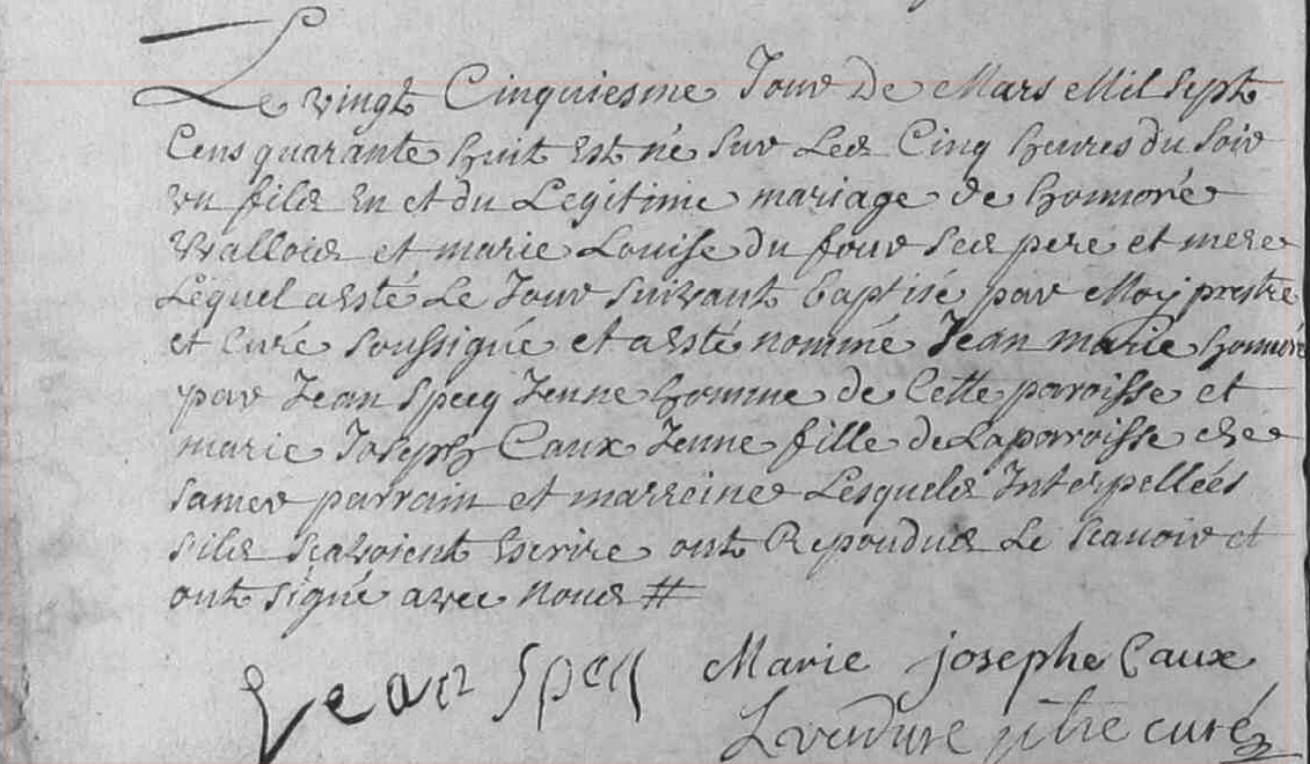 Le vingt Cinquiesme Jour De Mars Mil Sept
Cens quarante huit Est né Sur Les Cinq heures du Soir
un fils En et du Legitime mariage de honnoré
Wallois et marie Louise du four Ses pere et mere
Lequel a Esté Le Jour Suivant baptisé par Moy prestre
et Curé Soussigné et a Esté nommé Jean marie honnoré
par Jean Specq Jeune homme de Cette paroisse et
marie Joseph Caux Jeune fille de La paroisse de
Samer parrain et marreine Lesquels Interpellées
s'ils Scavoient Escrire ont Repondus Le Scavoir et
ont signé avec nous #
Jean Specq Marie josephe Caux
ptre curé